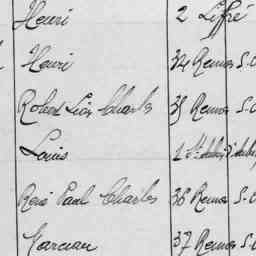 Henri 2 Liffré
Henri 34 Rennes S.O
Robert Léon Charles 35 Rennes S.O
Louis 1 St Aubin d'Aub
René Paul Charles 36 Rennes S-O
Marceau 37 Rennes S-O